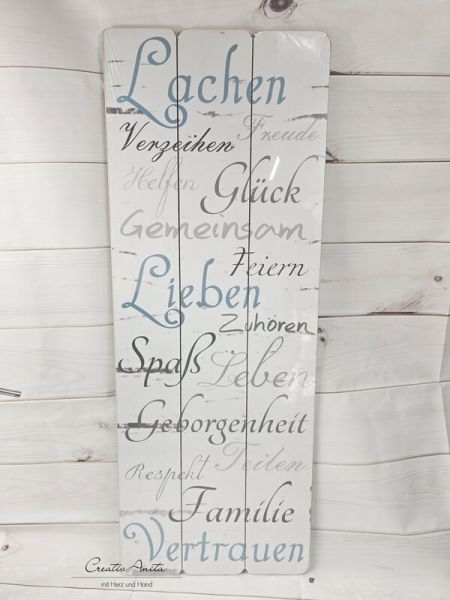 Lachen
Freude
Verzeihen
Helfen
Glück
Gemeinsam
Feiern
Lieben
Zuhören
Spaß
Leben
Geborgenheit
Teilen
Respekt
Familie
Vertrauen
CreativAnita
mit Herz und Hand